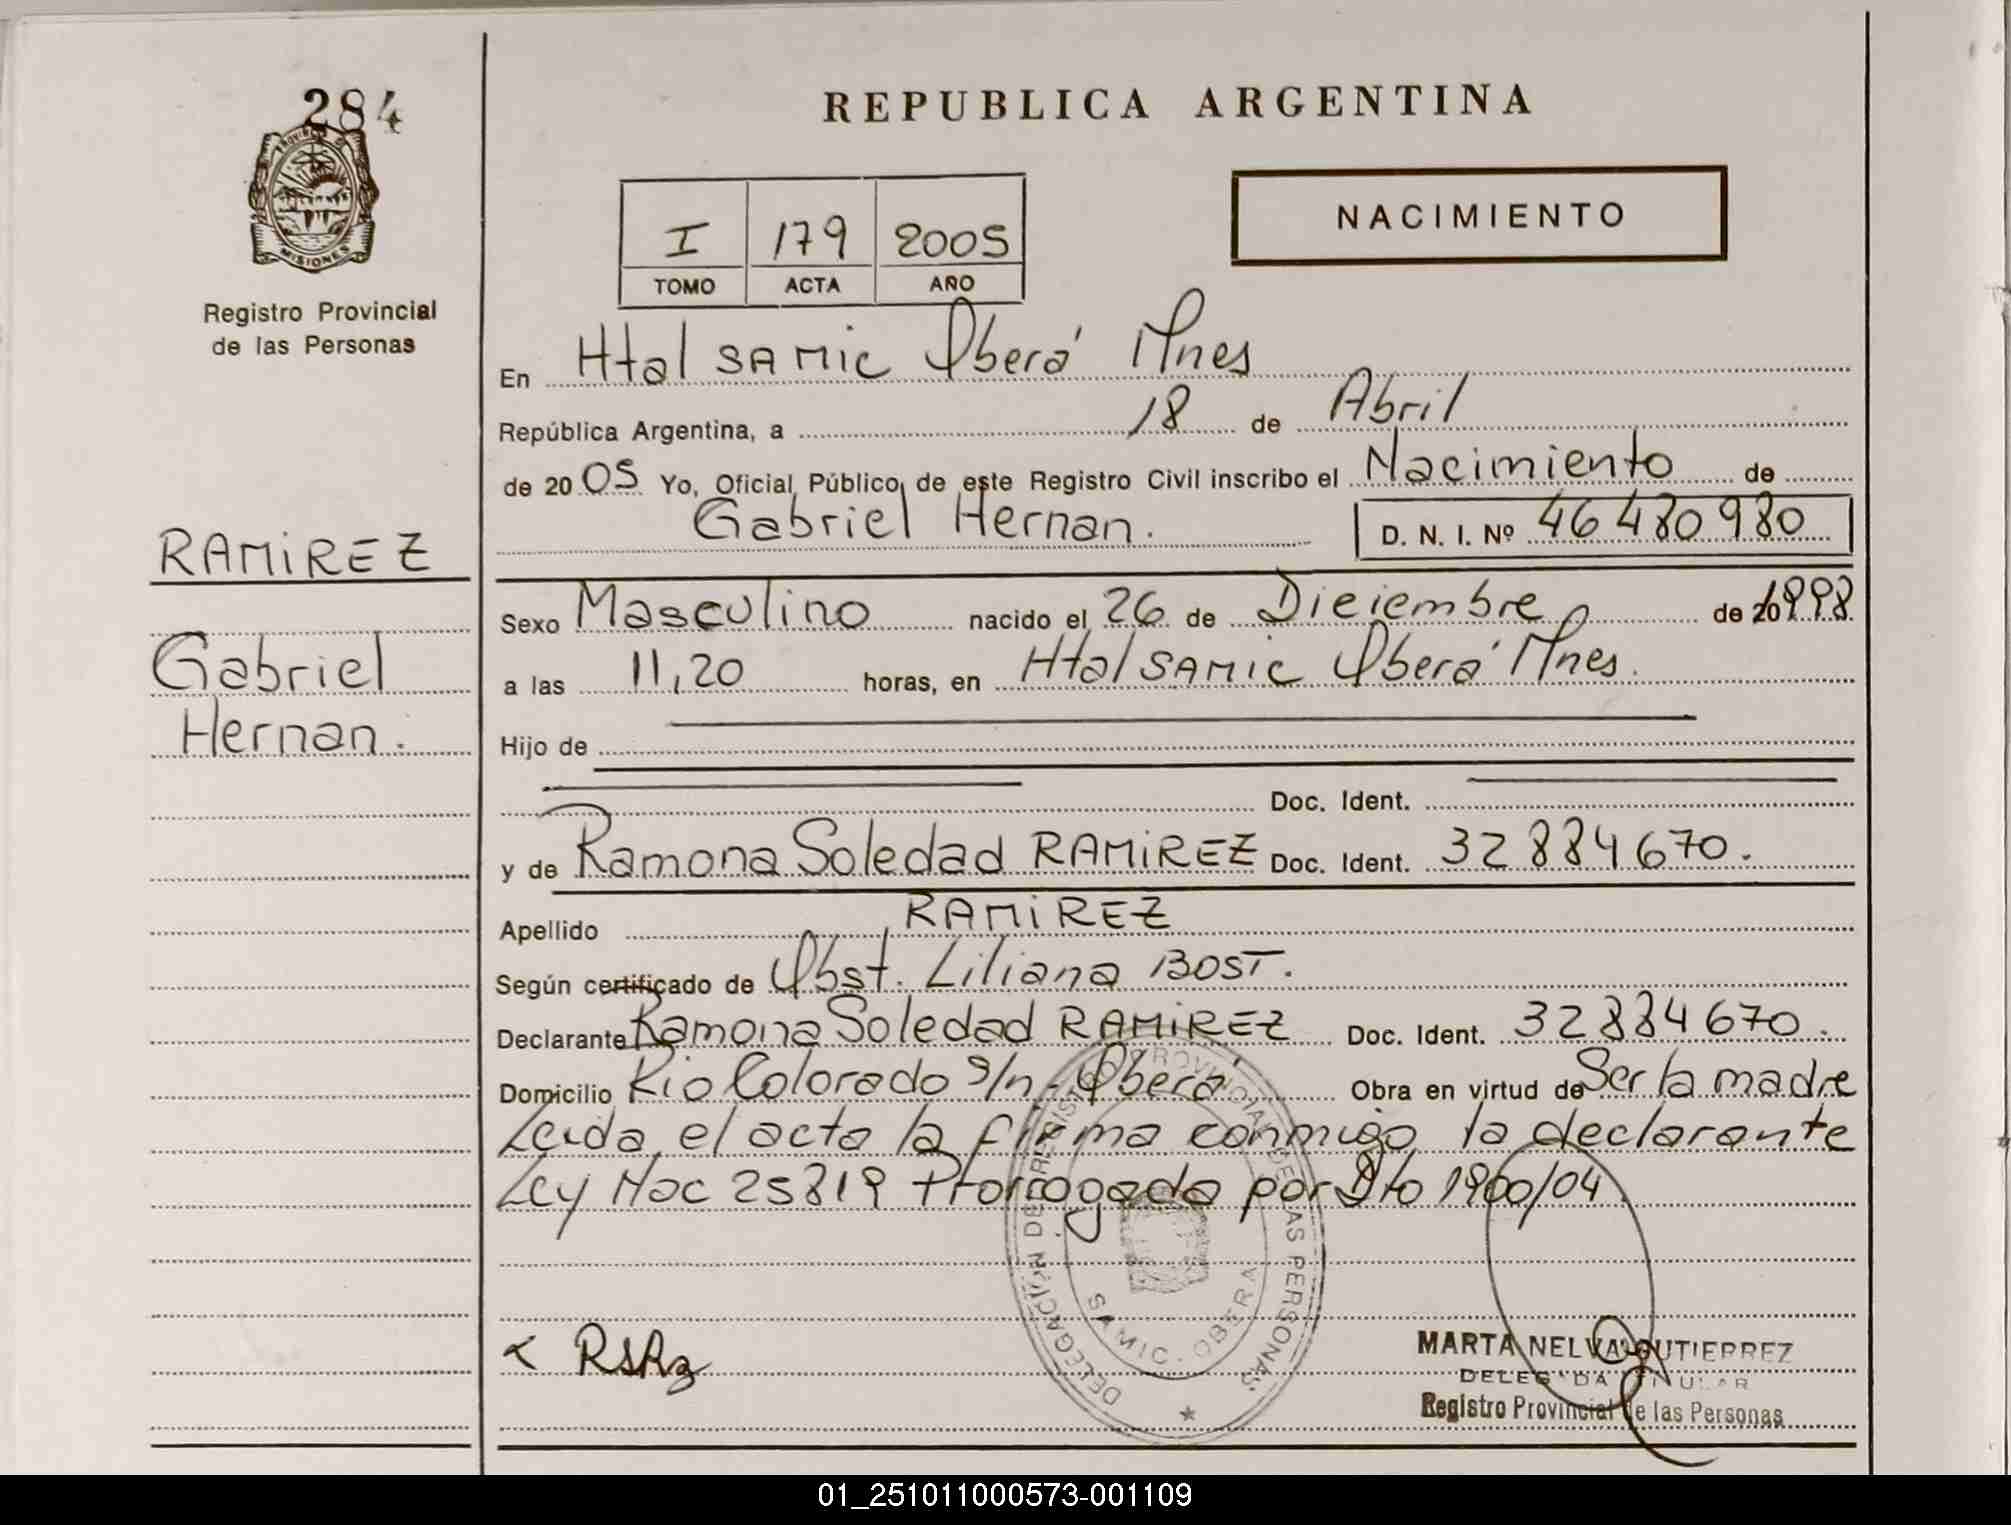 284
PROVINCIA DE
MISIONES
Registro Provincial
de las Personas
RAMIREZ
Gabriel
Hernan.
REPUBLICA ARGENTINA
I 179 2005
TOMO ACTA AÑO
NACIMIENTO
En Htal SAMIC Oberá Mnes
República Argentina, a 18 de Abril
de 2005 Yo, Oficial Público, de este Registro Civil inscribo el Nacimiento de
Gabriel Hernan. D. N. I. Nº 46480980
Sexo Masculino nacido el 26 de Diciembre de 1998
a las 11,20 horas, en Htal SAMIC Oberá Mnes.
Hijo de
Doc. Ident.
y de Ramona Soledad RAMIREZ Doc. Ident. 32884670.
Apellido RAMIREZ
Según certificado de Obst. Liliana BOST.
Declarante Ramona Soledad RAMIREZ Doc. Ident. 32884670.
Domicilio Rio Colorado s/n - Oberá Obra en virtud de Ser la madre
Leida el acta la firma conmigo la declarante
Ley Nac 25819 Prorrogada por Dto 1900/04.
DELEGACIÓN DEL REGISTRO PROVINCIAL DE LAS PERSONAS
SAMIC - OBERA
MARTA NELVA GUTIERREZ
DELEGADA TITULAR
Registro Provincial de las Personas
01_251011000573-001109